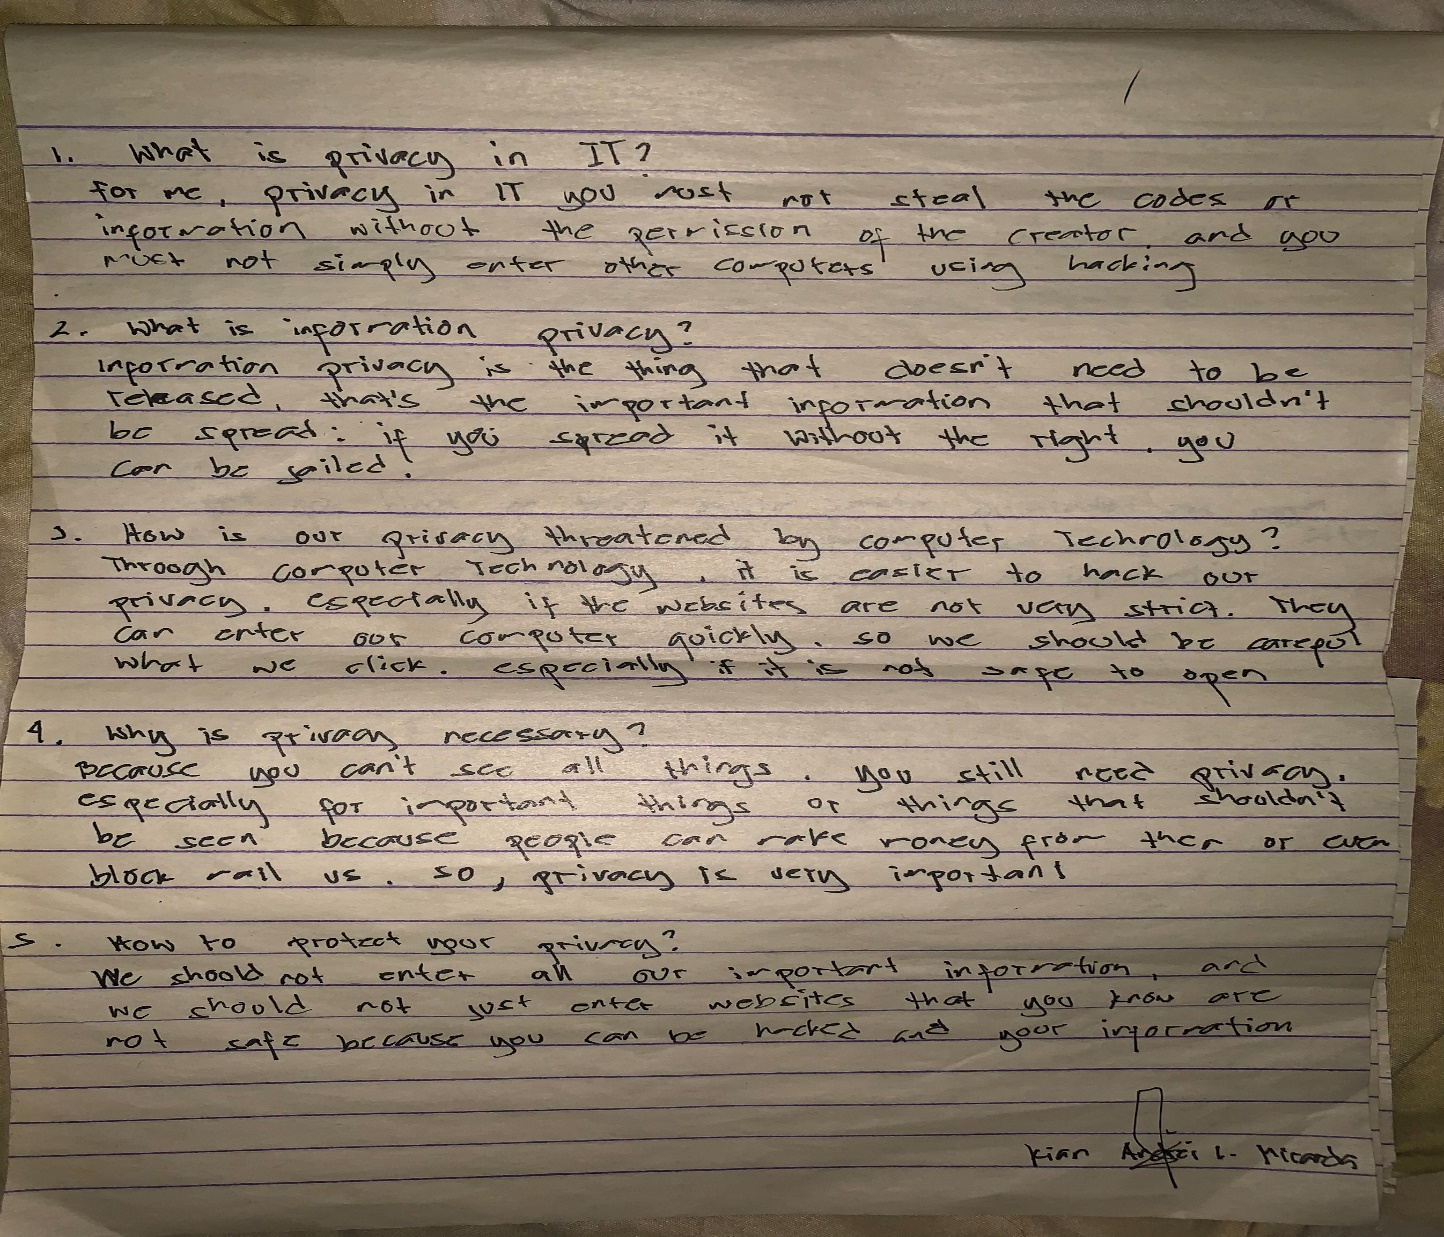 1. What is privacy in IT?
for me, privacy in IT you must not steal the codes or
information without the permission of the creator, and you
must not simply enter other computers using hacking
2. What is information privacy?
Information privacy is the thing that doesn't need to be
released, that's the important information that shouldn't
be spread: if you spread it without the right, you
can be jailed!
3. How is our privacy threatened by computer Technology?
Through computer Technology, it is easier to hack our
privacy. especially if the websites are not very strict. They
can enter our computer quickly, so we should be careful
what we click. especially if it is not safe to open
4. Why is privacy necessary?
Because you can't see all things. you still need privacy.
especially for important things or things that shouldn't
be seen because people can make money from them or even
block mail us. so, privacy is very important
5. How to protect your privacy?
We should not enter all our important information, and
we should not just enter websites that you know are
not safe because you can be hacked and your information
Kian Andrei L.